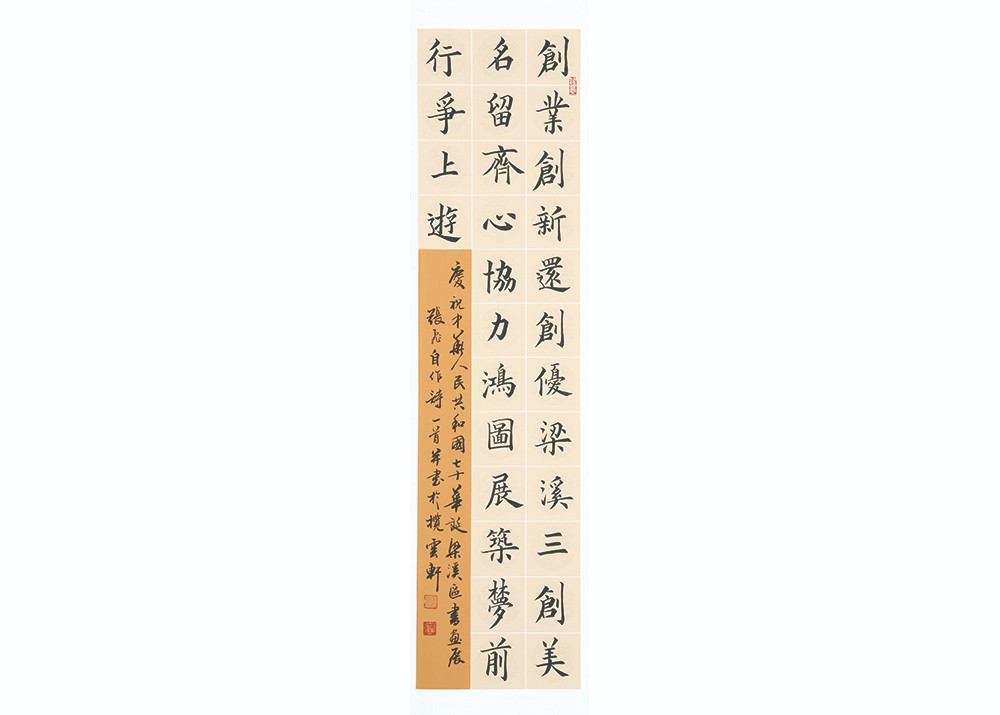 創業創新還創優梁溪三創美
名留齊心協力鴻圖展築夢前
行爭上遊
慶祝中華人民共和國七十華誕梁溪區書畫展
張飛自作詩一首并書於攬雲軒